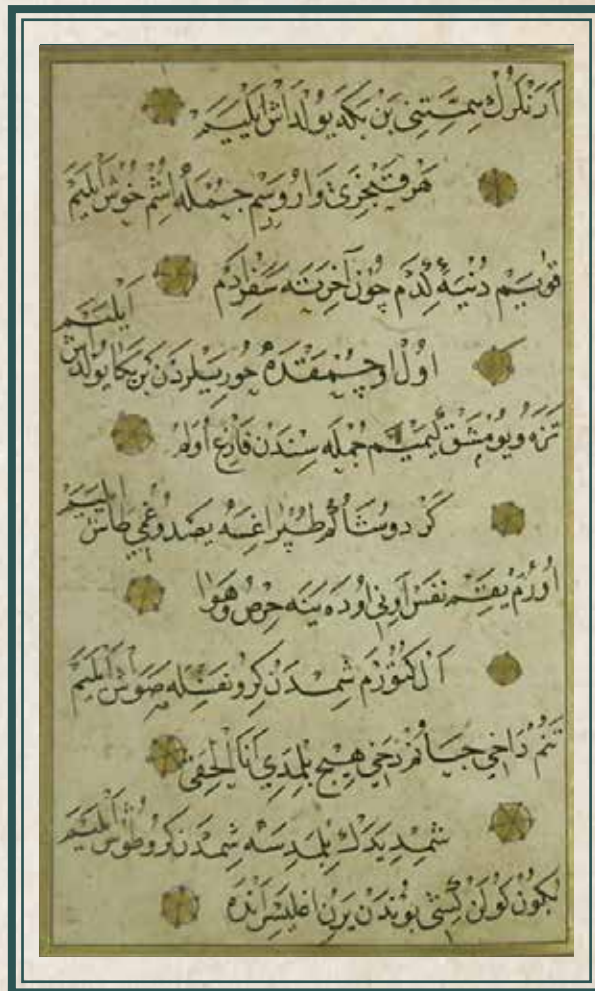 اَرَنْلَرُكْ هِمَّتِنِى بَنْ بَكَه يُولْدَاشْ اَيْلَيَمْ
هَرْ قَنْجَرِى وَارُرْسَمْ جُمْلَه اِشُمْ خُوشْ اَيْلَيَمْ
قُويَمْ دُنْيَه كِدَمْ چُونْ آخِرَتَه سَفَرْ ادَمْ
اُولْ اوچْمَقْدَه حُورِيلَرْدَنْ بَنْ بَكَا يُولْدَاشْ اَيْلَيَمْ
تَزَه و يُومْشَقْ كَيْمَيَمْ جُمْلَه سِنْدَنْ فَارِغْ اُولَمْ
كَرْ دوشَاكُمْ طُپْرَاغِسَه يَصْدُوغُمِى طَاشْ اَيْلَيَمْ
اُورُمْ يِقَمْ نَفْسْ اَوِنِى اودَه يَنَه حِرْصُ و هَوَا
اَلْ كَتُورَمْ شِمْدَنْ كِرُو نَفْسِلَه صَوَاشْ اَيْلَيَمْ
تَنُمْ دَاخِى جَانُمْ دَخِى هِيچْ بِلْمَدِى اَنَا الْحَقِّى
شِمْدِيَدَكْ بِلْمَدِسَه شِمْدَنْ كِرُو طُوشْ اَيْلَيَمْ
بُكُونْ كُولَنْ كِشِى بُونْدَنْ يَرِنْ اغْلَيِسَرْ اَنْدَه